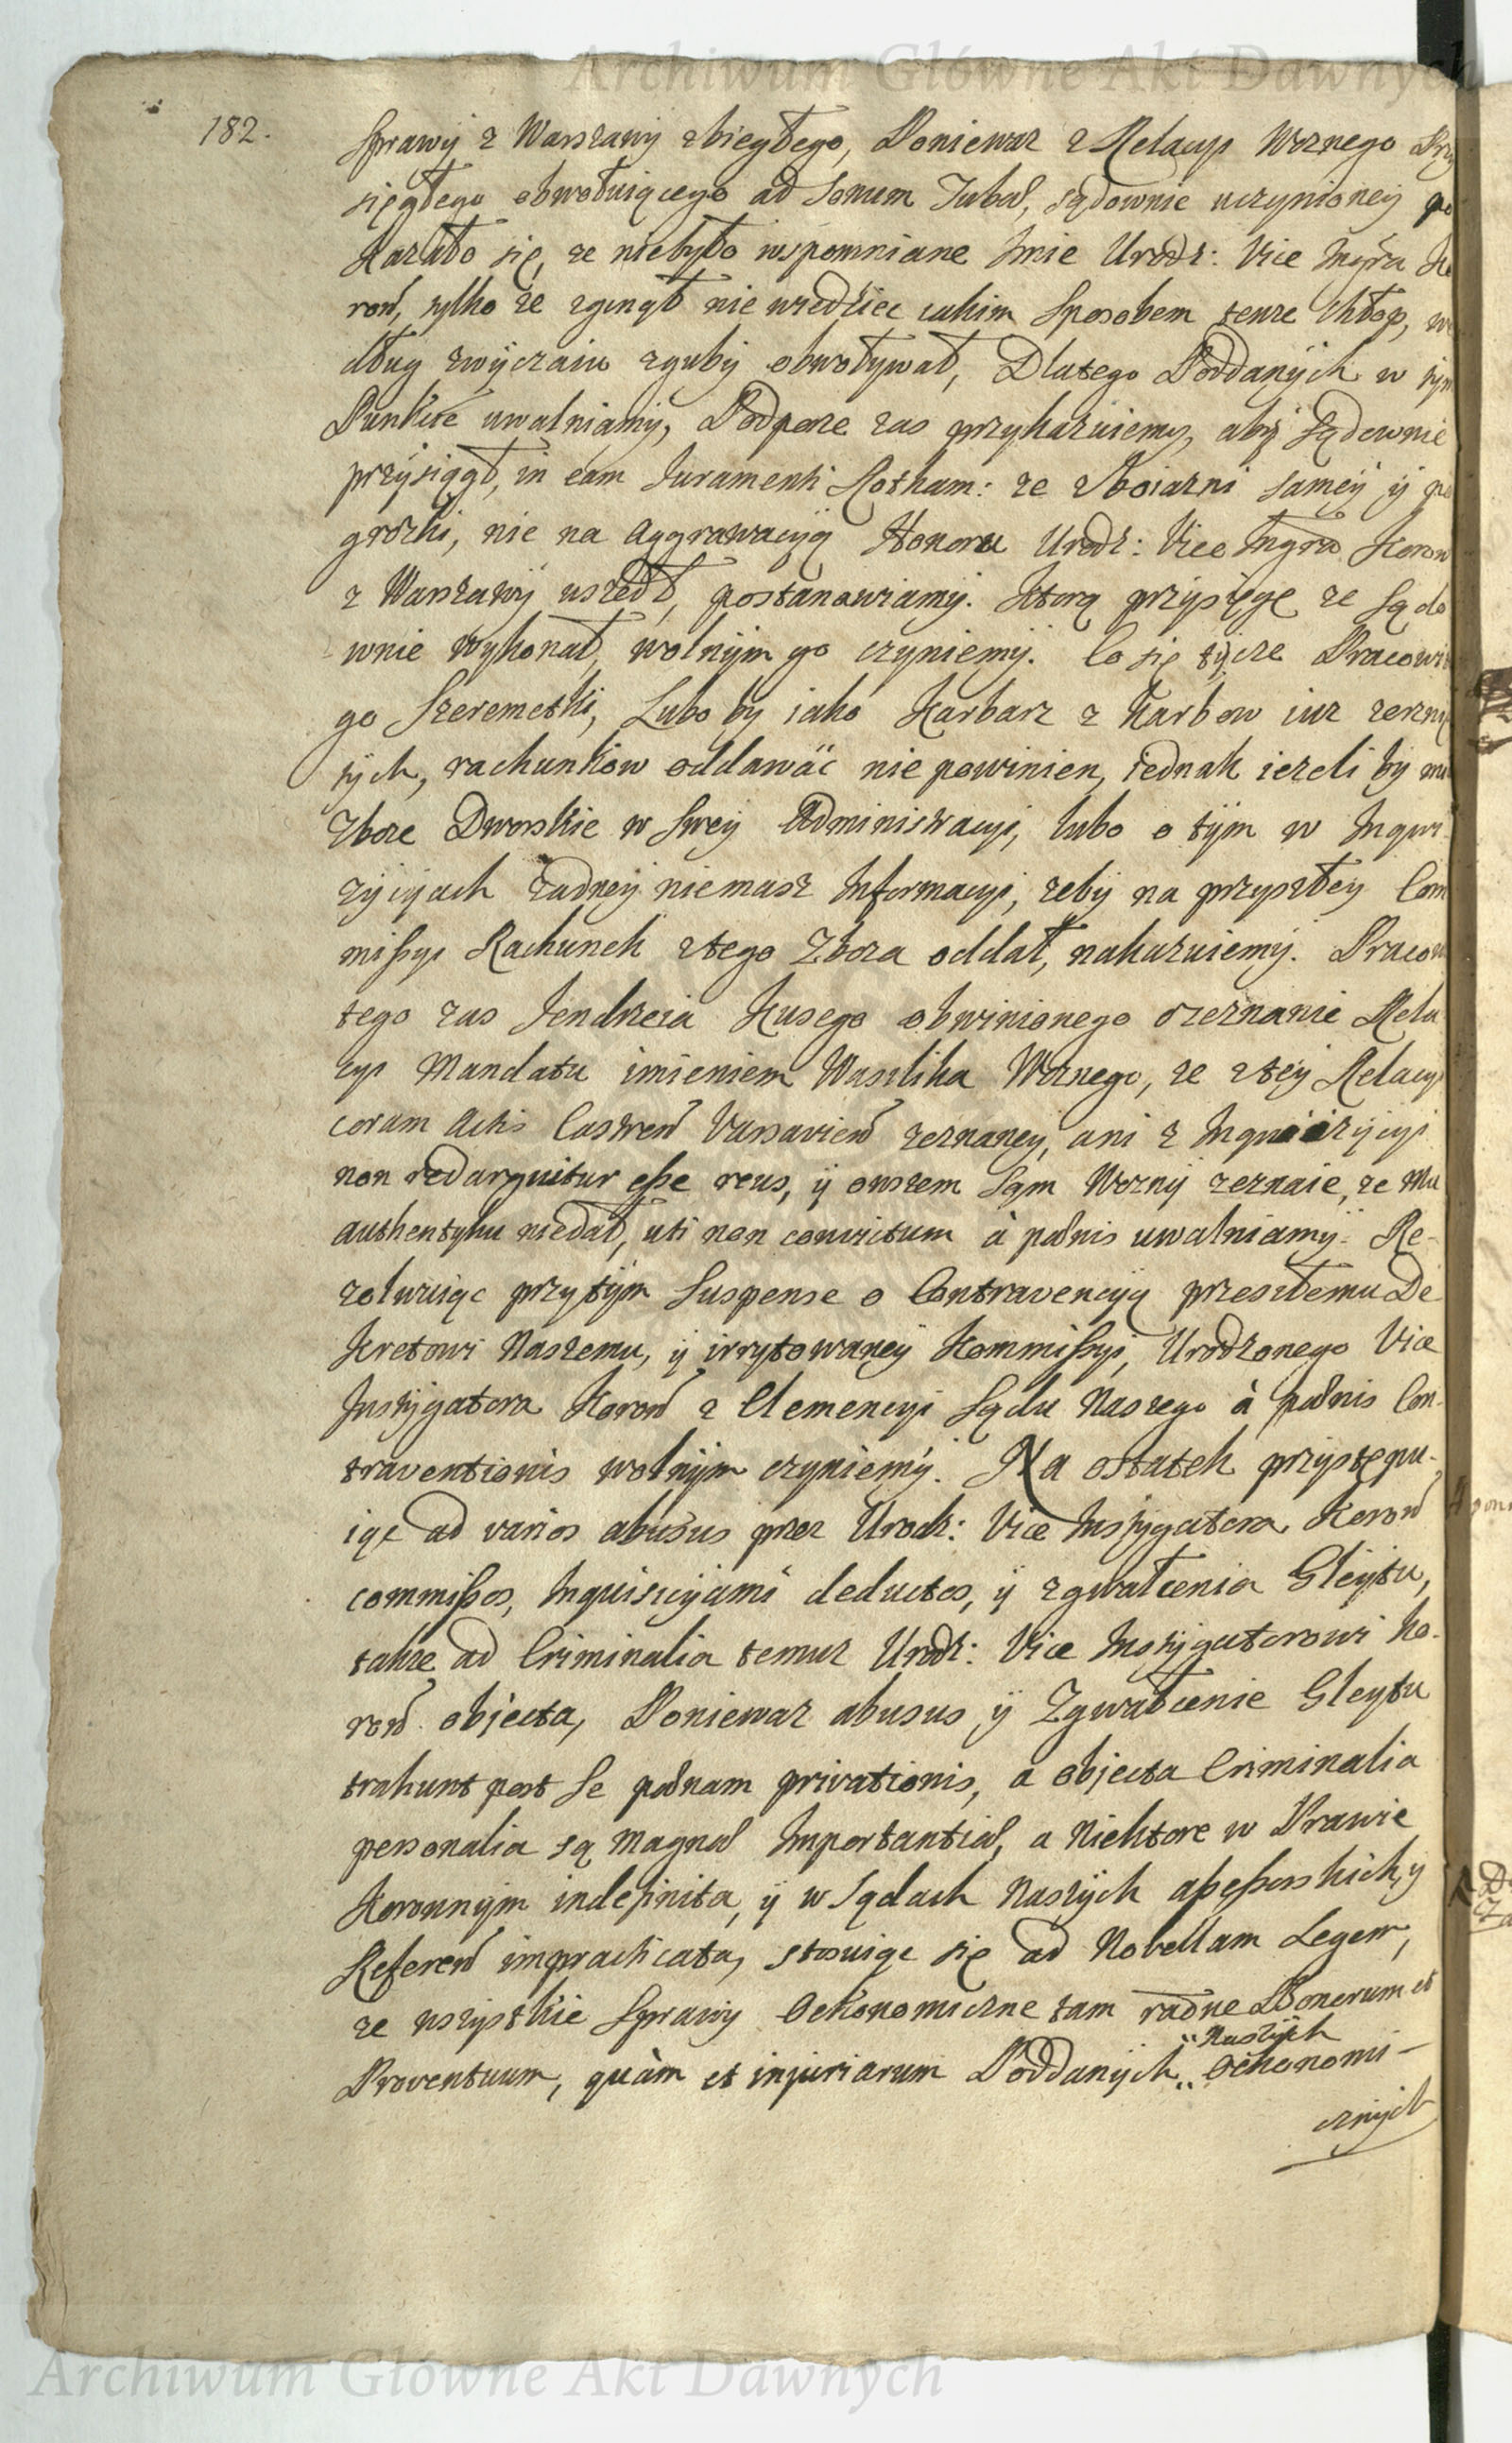 Archiwum Główne Akt Dawnych
182.
Sprawÿ z Warszawÿ zbiegłego, Poniewaz z Relacyi Woznego Przy
sięgłego obwołuiącego ad Sonum Tubæ, sądownie uczynioneÿ po
kazało się, ze niebyło wspomniane Imie Urodz: Vice Ingra Ko
ron̄, tylko ze zginął nie wiedziec iakim Sposobem tenze Chłop, we
dług zwÿczaiu zgubÿ obwoływał, Dlatego Poddanÿch w tÿm
Punkcie uwalniamÿ, Podpare zas przykazuiemy, abÿ Sądownie
przÿsiągł, in eam Juramenti Rotham: ze z boiazni sameÿ ÿ po
grozki, nie na Aggrawacyią Honoru Urodz: Vice Ingra Koron
z Warszawÿ uszedł, postanawiamÿ. Ktorą przysięgę ze Sądo
wnie wykonał, wolnÿm go czyniemÿ. Co się tÿcze Pracowi
go Szeremetki, Lubo by iako Karbarz z Karbow iuz zerzny
tÿch, rachunkow oddawać nie powinien, iednak iezeli by mi
Zboze Dworskie w Sweÿ Administracyi, lubo o tÿm w Inqwi
zÿcÿach zadneÿ niemasz Informacyi, zebÿ na przyszłeÿ Com
missyi Rachunek z tego Zboza oddał, nakazuiemÿ. Pracow
tego zas Jendrzeia Kusego obwinionego o zeznanie Rela
cyi Mandatu imieniem Waszlika Woznego, ze z teÿ Relacyi
coram Actis Castren̄ Varsavien̄ zeznaneÿ, ani z Inqwizÿcyi
non redarguitur esse reus, ÿ owszem Sąm Woznÿ zeznaie, ze Mu
authentyku niedał, uti non convictum à pænis uwalniamÿ. Re-
zolwuiąc przytÿm Suspense o Contravencyią przeszłemu De
kretowi Naszemu, ÿ irrytowaneÿ Kommissyi, Urodzonego Vice
Instÿgatora Koron̄ z Clemencyi Sądu Naszego à pænis Con-
traventionis wolnÿm czyniemÿ. Na ostatek przystępu-
iąc ad varios abusus przez Urodz: Vice Instÿgatora Koron̄
commissos, Inquisicÿami deductos, ÿ zgwałcenia Gleÿtu,
takze ad Criminalia temuz Urodz: Vice Instÿgatorowi Ko-
ron̄ objecta, Poniewaz abusus ÿ Zgwałcenie Gleytu
trahunt post Se pænam privationis, a objecta Criminalia
personalia są Magnæ Importantiæ, a Niektore w Prawie
Koronnÿm indefinita, ÿ w Sądach Naszÿch assessorskich, ÿ
Referen̄ impracticata, stosuiąc się ad Novellam Legem,
ze wszÿstkie Sprawÿ Oekonomiczne tam ratione Bonorum et
Proventuum, quàm et injuriarum Poddanÿch Naszÿch Oekonomi-
cznÿch
Archiwum Główne Akt Dawnych